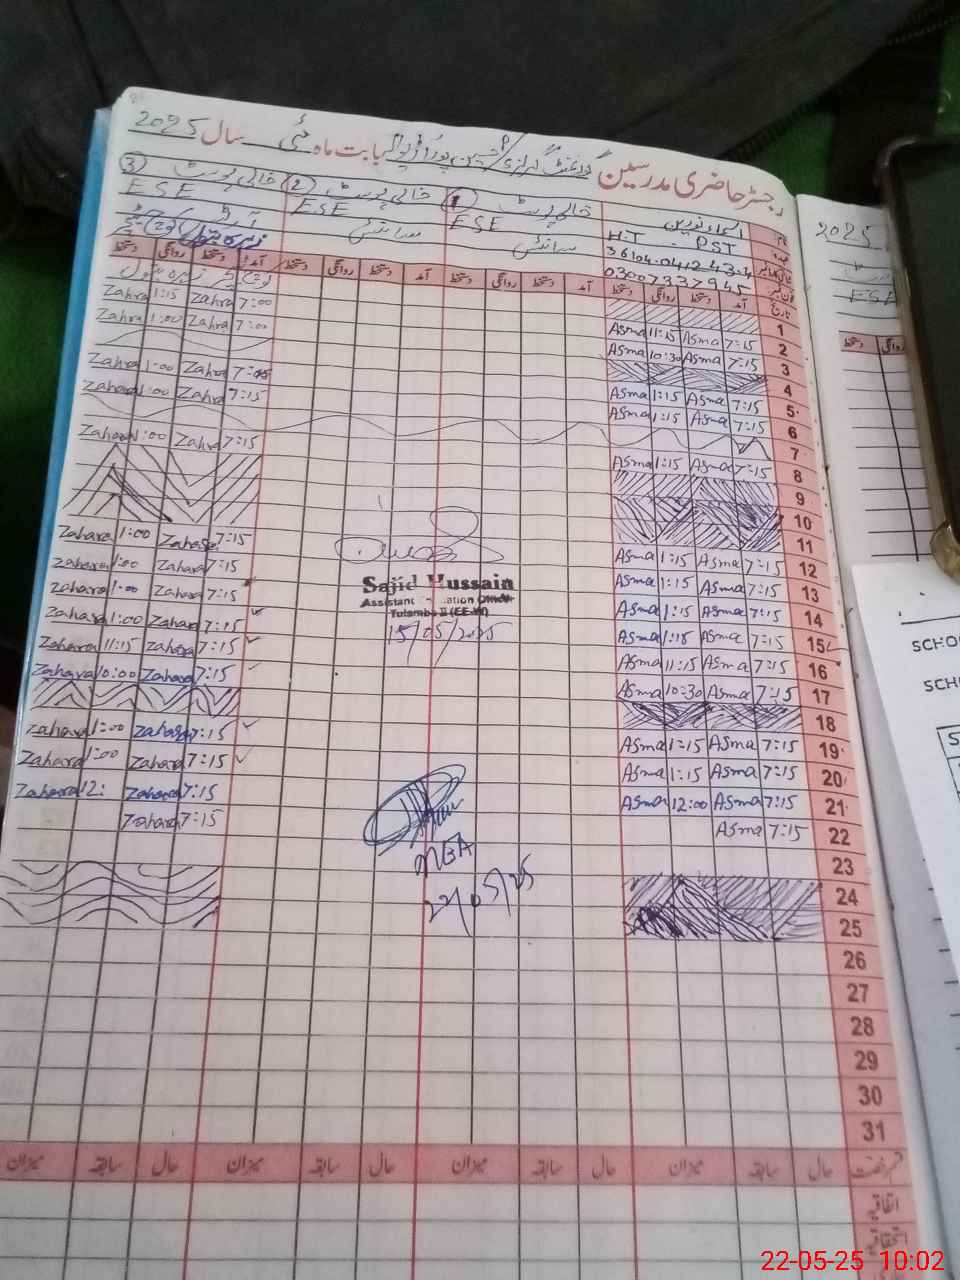 رجسٹر حاضری مدرسین گورنمنٹ گرلز بابت ماہ مئی سال 2025
اسماء مدرسین
① خالی پوسٹ ② خالی پوسٹ ③ خالی پوسٹ
H.T PST ESE ESE ESE
سائنس سائنس آرٹس
03007337945
تاریخ آمد دستخط روانگی دستخط آمد دستخط روانگی دستخط آمد دستخط روانگی دستخط آمد دستخط روانگی دستخط
1 7:00 Zahra 1:15 Zahra
2 7:15 Asma 11:15 Asma 7:00 Zahra 1:00 Zahra
3 7:15 Asma 10:30 Asma
4 7:15 Zahra 1:00 Zahra
5 7:15 Asma 1:15 Asma 7:15 Zahra 1:00 Zahara
6 7:15 Asma 1:15 Asma
7 7:15 Zahra 1:00 Zahara
8 7:15 Asma 1:15 Asma
9
10
11
12 7:15 Asma 1:15 Asma 7:15 Zahara 1:00 Zahara
13 7:15 Asma 1:15 Asma 7:15 Zahara 1:00 Zahara
14 7:15 Asma 1:15 Asma 7:15 Zahara 1:00 Zahara
15 7:15 Asma 1:15 Asma 7:15 Zahara 1:00 Zahara
16 7:15 Asma 11:15 Asma 7:15 Zahara 11:15 Zahara
17 7:15 Asma 10:30 Asma 7:15 Zahara 10:00 Zahara
18
19 7:15 Asma 1:15 Asma 7:15 Zahara 1:00 Zahara
20 7:15 Asma 1:15 Asma 7:15 Zahara 1:00 Zahara
21 7:15 Asma 12:00 Asma 7:15 Zahara 12: Zahara
22 7:15 Asma 7:15 Zahara
23
24
25
26
27
28
29
30
31
Sajid Hussain
Assistant Education Officer
Tulamba II (EE-M)
15/05/2025
MEA
22/05/25
قسم رخصت حال سابقہ میزان حال سابقہ میزان حال سابقہ میزان حال سابقہ میزان
اتفاقیہ
استحقاقیہ
2025
ESE
دستخط روانگی
SCHO
SCH
22-05-25 10:02